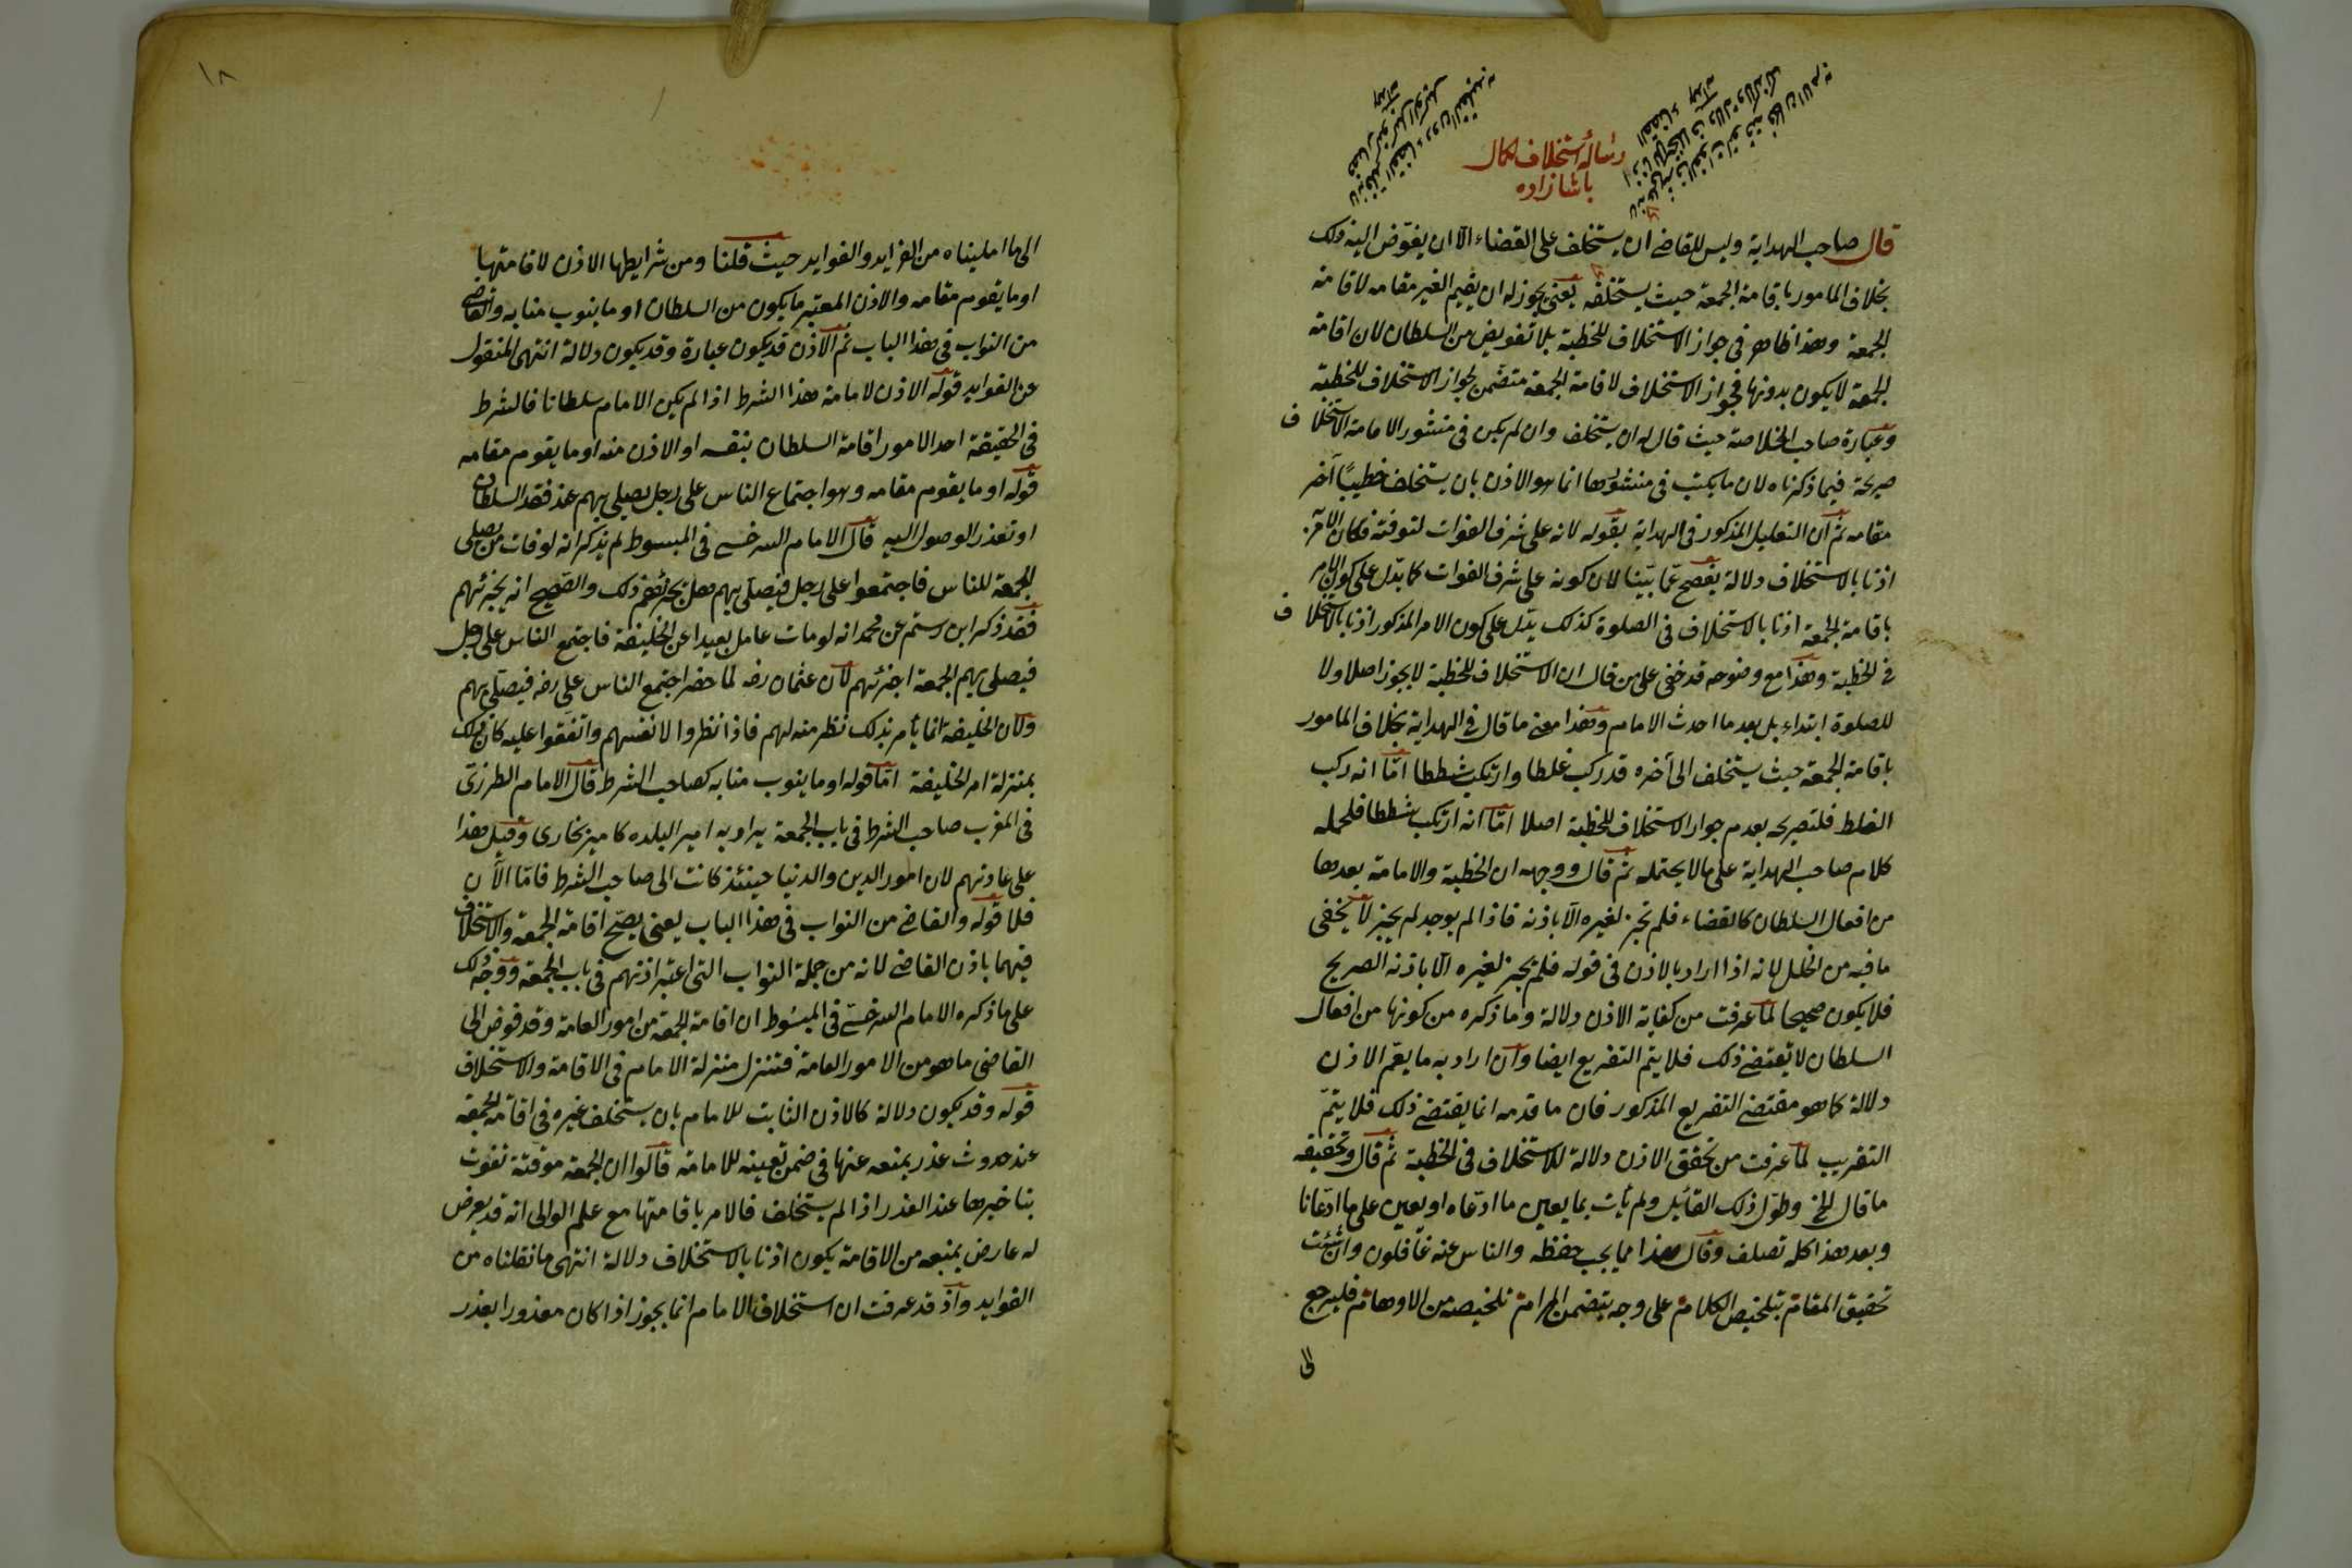 رسالة استخلاف لكمال
باشا زاده
قال صاحب الهداية وليس للقاضي ان يستخلف على القضاء الا ان يفوض اليه ذلك
بخلاف المامور باقامة الجمعة حيث يستخلف يعني يجوز له ان يقيم الغير مقامه لاقامة
الجمعة وهذا ظاهر في جواز الاستخلاف للخطبة بلا تفويض من السلطان لان اقامة
الجمعة لا يكون بدونها فجواز الاستخلاف لاقامة الجمعة متضمن لجواز الاستخلاف للخطبة
وعبارة صاحب الخلاصة حيث قال له ان يستخلف وان لم يكن في منشور الامامة الاستخلاف
صريحة فيما ذكرناه لان ما يكتب في منشورها انما هو الاذن بان يستخلف خطيبًا آخر
مقامه ثم ان التعليل المذكور في الهداية بقوله لانه على شرف الفوات لتوقته فكان الامر به
اذنا بالاستخلاف دلالة يفصح عما بينا لان كونه على شرف الفوات كما يدل على كون الامر
باقامة الجمعة اذنا بالاستخلاف في الصلوة كذلك يدل على كون الامر المذكور اذنا بالاستخلاف
في الخطبة وهذا مع وضوحه قد خفي على من قال ان الاستخلاف للخطبة لا يجوز اصلا ولا
للصلوة ابتداء بل بعد ما احدث الامام وهذا معنى ما قال في الهداية بخلاف المامور
باقامة الجمعة حيث يستخلف الى آخره قد ركب غلطا وارتكب شططا اما انه ركب
الغلط فلتصريحه بعدم جواز الاستخلاف للخطبة اصلا اما انه ارتكب شططا فلحمله
كلام صاحب الهداية على ما لا يحتمله ثم قال ووجهه ان الخطبة والامامة بعدها
من افعال السلطان كالقضاء فلم تجز لغيره الا باذنه فاذا لم يوجد لم يجز لا يخفى
ما فيه من الخلل لانه اذا اراد بالاذن في قوله فلم تجز لغيره الا باذنه الصريح
فلا يكون صحيحا لما عرفت من كفاية الاذن دلالة وما ذكره من كونها من افعال
السلطان لا تقتضي ذلك فلا يتم التفريع ايضا وان اراد به ما يعم الاذن
دلالة كما هو مقتضى التفريع المذكور فان ما قدمه انما يقتضي ذلك فلا يتم
التقريب لما عرفت من تحقق الاذن دلالة للاستخلاف في الخطبة ثم قال وتحقيقه
ما قال الخ وطول ذلك القائل ولم يأت بما يعين ما ادعاه او يعين على ما ادعانا
وبعد هذا كله تصلف وقال هذا مما يجب حفظه والناس عنه غافلون وان شئت
تحقيق المقام بتلخيص الكلام على وجه يتضمن المرام تلخيصه من الاوهام فليرجع
الى
١٨
الى ما امليناه من الفرايد والفوايد حيث قلنا ومن شرايطها الاذن لاقامتها
او ما يقوم مقامه والاذن المعتبر ما يكون من السلطان او ما ينوب منابه والقاضي
من النواب في هذا الباب ثم الاذن قد يكون عبارة وقد يكون دلالة انتهى المنقول
عن الفوايد قوله الاذن لامامة هذا الشرط اذا لم يكن الامام سلطانا فالشرط
في الحقيقة احد الامور اقامة السلطان بنفسه او الاذن منه او ما يقوم مقامه
قوله او ما يقوم مقامه وهو اجتماع الناس على رجل يصلي بهم عند فقد السلطان
او تعذر الوصول اليه قال الامام السرخسي في المبسوط لم يذكر انه لو فات من يصلي
الجمعة للناس فاجتمعوا على رجل فيصلي بهم هل تجزئهم ذلك والصحيح انه يجزئهم
فقد ذكر ابن رستم عن محمد انه لو مات عامل بعيدا عن الخليفة فاجتمع الناس على رجل
فيصلي بهم الجمعة اجزئهم لان عثمان رضه لما حضر اجتمع الناس على علي رضه فيصلي بهم
ولان الخليفة انما يأمر بذلك نظر منه لهم فاذا نظروا لانفسهم واتفقوا عليه كان ذلك
بمنزلة امر الخليفة اما قوله او ما ينوب منابه كصاحب الشرط قال الامام المطرزي
في المغرب صاحب الشرط في باب الجمعة يراد به امير البلده كامير بخارى وقيل هذا
على عادتهم لان امور الدين والدنيا حينئذ كانت الى صاحب الشرط فاما الآن
فلا قوله والقاضي من النواب في هذا الباب يعني يصح اقامة الجمعة والاستخلاف
فيهما باذن القاضي لانه من جملة النواب التي اعتبر اذنهم في باب الجمعة ووجه ذلك
على ما ذكره الامام السرخسي في المبسوط ان اقامة الجمعة من امور العامة وقد فوض الى
القاضي ما هو من الامور العامة فتنزل منزلة الامام في الاقامة والاستخلاف
قوله وقد يكون دلالة كالاذن الثابت للامام بان يستخلف غيره في اقامة الجمعة
عند حدوث عذر يمنعه عنها في ضمن تعيينه للامامة قالوا ان الجمعة موقتة تفوت
بتاخيرها عند العذر اذا لم يستخلف فالامر باقامتها مع علم الوالي انه قد يعرض
له عارض يمنعه من الاقامة يكون اذنا بالاستخلاف دلالة انتهى ما نقلناه من
الفوايد واذ قد عرفت ان استخلاف الامام انما يجوز اذا كان معذورا بعذر